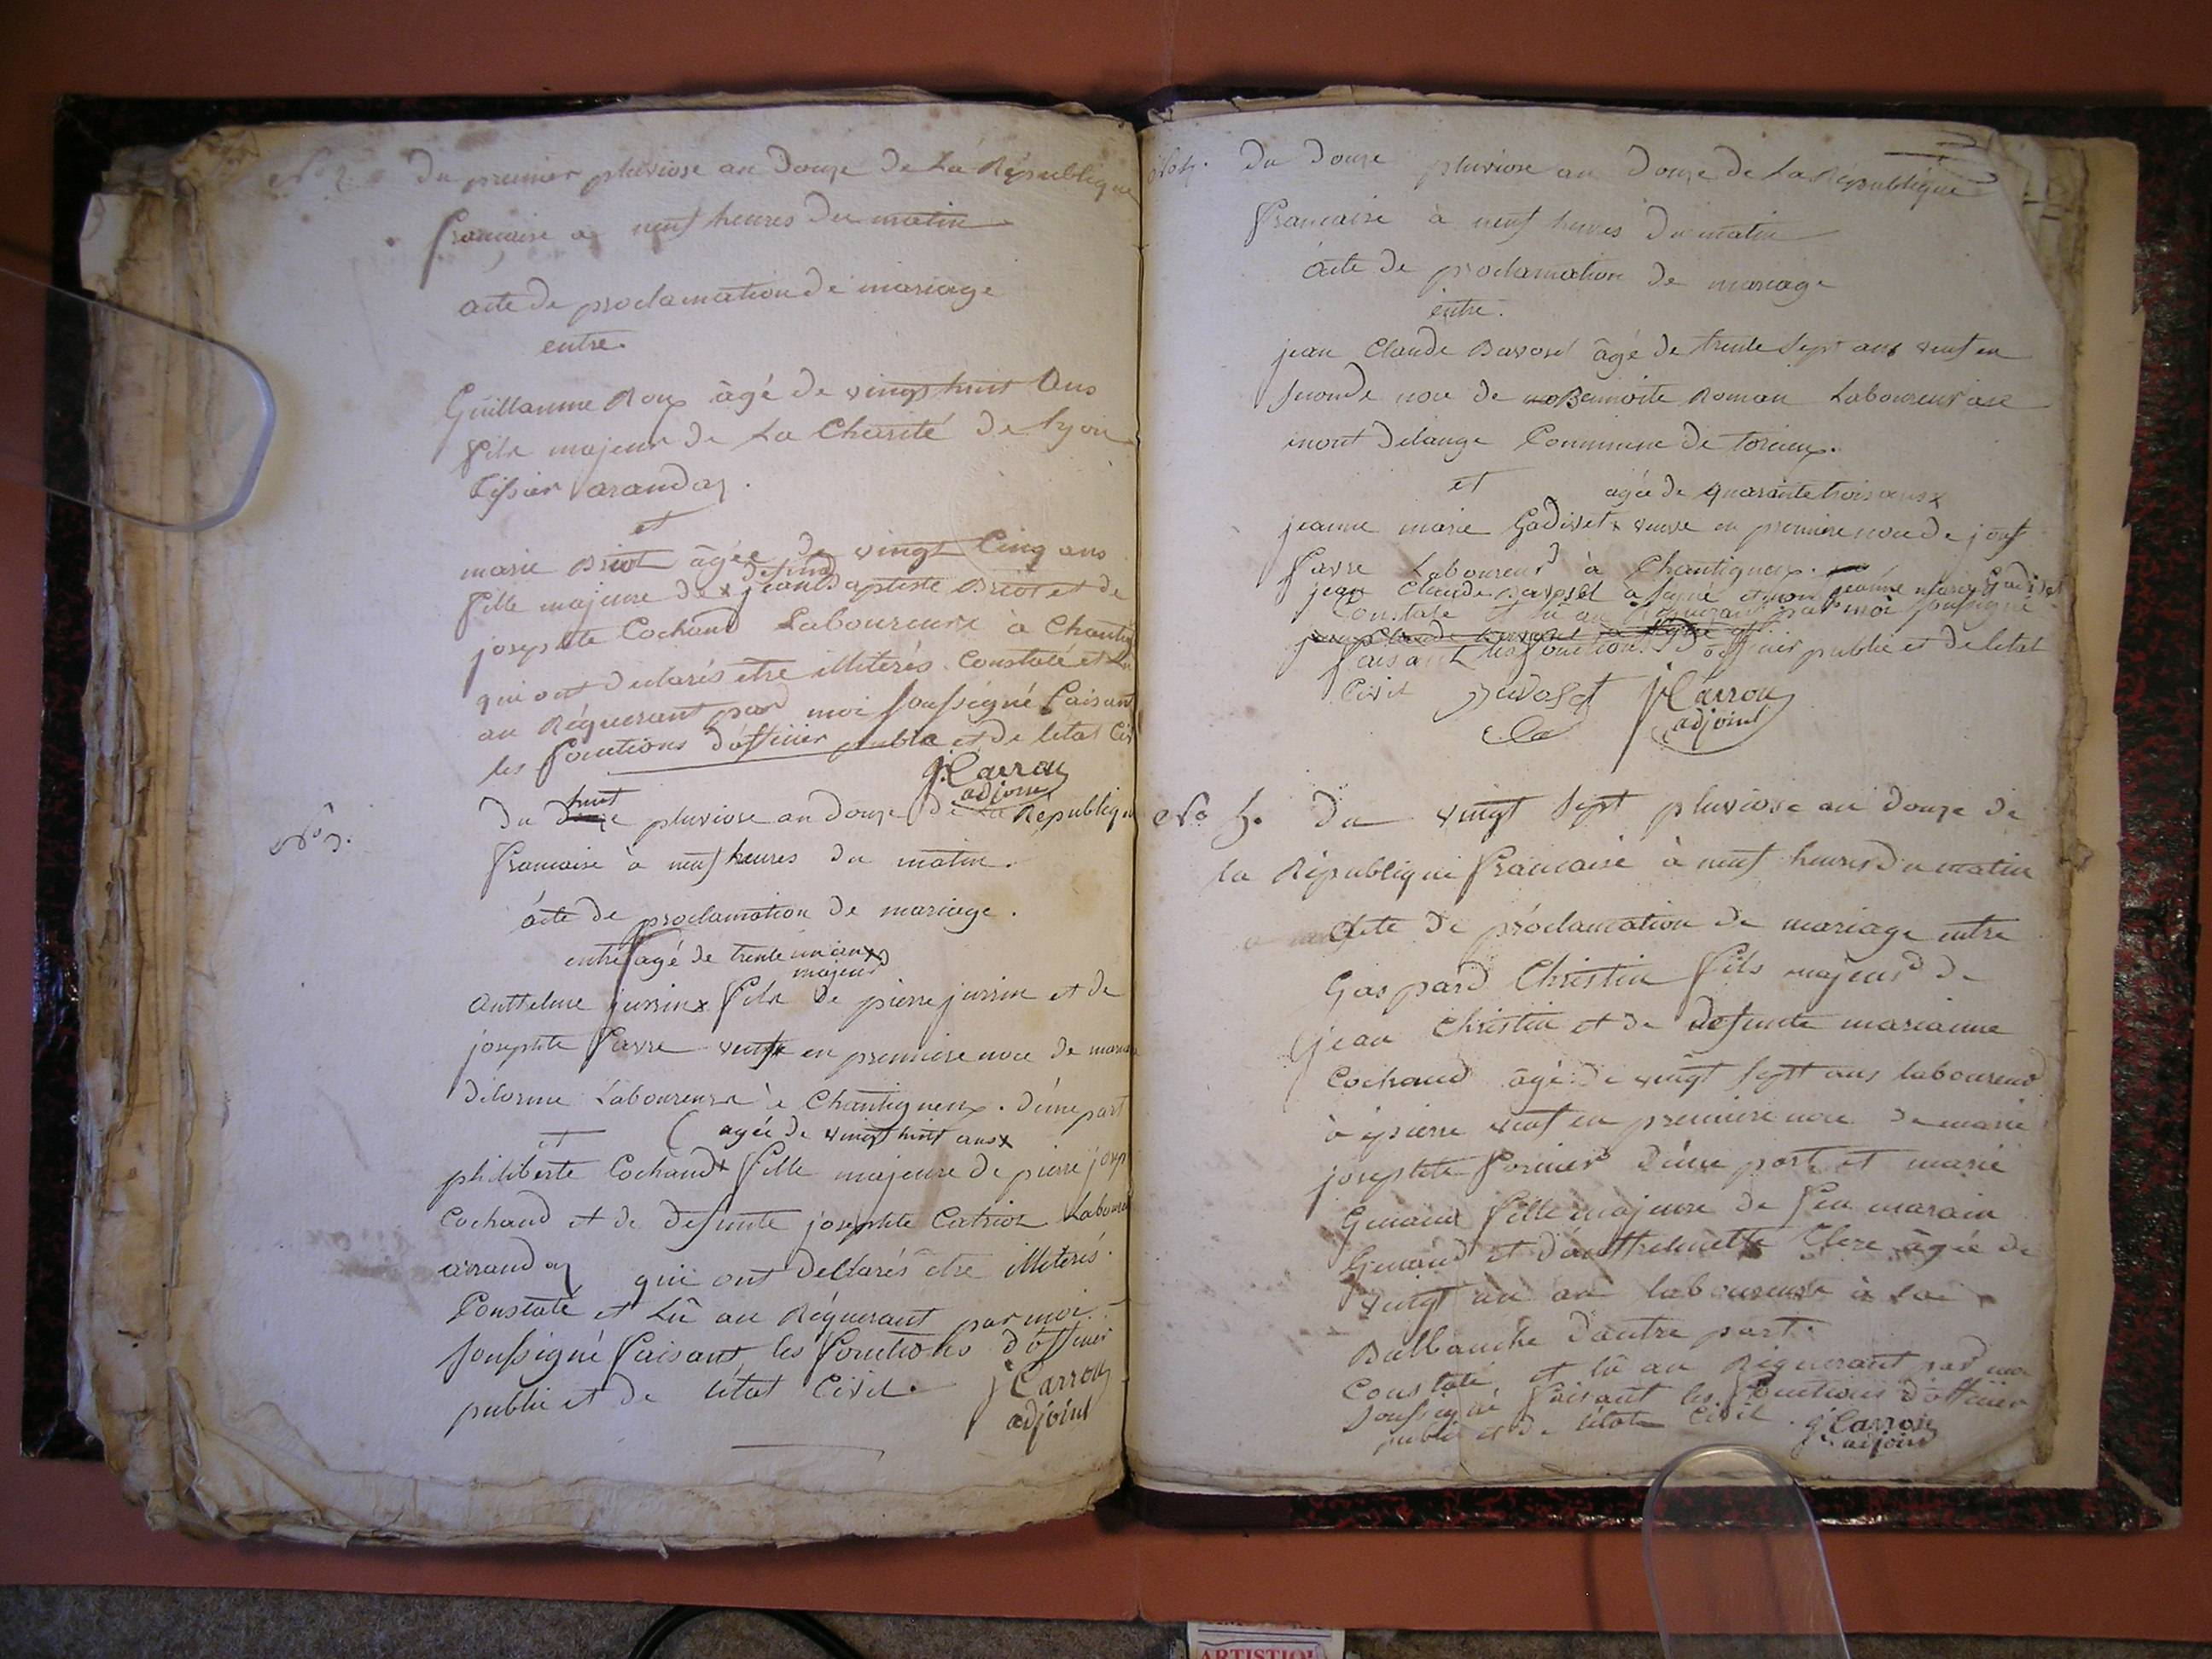 N° 2. Du premier pluviose an Douze de La République
francaise a neuf heures du matin
acte de proclamation de mariage
entre.
Guillaume Roux âgé de vingt huit Ans
fils majeur de La Charité de lyon
tissier aranda
et
marie Briot âgée de vingt Cinq ans
defunt
fille majeure de x jean Baptiste Briot et de
josephte Cochand Laboureurs à
qui ont declarés etre illiterés. Constaté et Lu
au Réquerant par moi soussigné faisant
les fonctions d'officier public et de létat
j. Carron
adjoint
N° 3.
huit
Du pluviose an Douze de La République
francaise à neuf heures du matin.
âcte de proclamation de mariage.
entre âgé de trente un ans x
majeur
anthelme jurrin x fils de pierre jurrin et de
josephte favre veuf en premiere noce de
delorme Laboureurs à Chantigneux. d'une part
et ( agée de vingt huit ans x
philiberte Cochand x fille majeure de pierre
Cochand et de defunte josephte
aranda qui ont declarés être illiterés.
Constaté et Lû au Réquerant par moi
soussigné faisant les fonctions d'officier
public et de létat Civil. j Carron
adjoint
No 4. Du Douze pluviose an Douze de La République
francaise à neuf heures du matin
âcte de proclamation de mariage
entre.
jean Claude Bavoset âgé de trente sept ans veuf en
seconde noce de Bennoite Roman Laboureur au
mont delange Commune de torcieux.
et agée de quarante trois ans x
jeanne marie Gadivet x veuve en premiere noce de josef
favre Laboureur à Chantigneux.
jean Claude bavoset a signé et non jeanne marie Gadivet
Constaté et lû au Réquerant par moi soussigné
jean Claude bavoset a signé
faisant les fonctions d'officier public et de létat
Civil bavoset j Carron
adjoint
No 5. Du vingt sept pluviose an douze de
la République francaise à neuf heures du matin
Acte de proclamation de mariage entre
Gaspard Christin fils majeur de
jean Christin et de defunte marianne
Cochand âgé de vingt sept ans laboureur
à veuf en premiere noce de marie
josephte fornier d'une part et marie
fille majeure de feu
et d'anthelmette Clerc âgée de
vingt un an laboureur à la
Balbanche d'autre part.
Constaté et lû au Réquerant par moi
soussigné faisant les fonctions d'officier
public et de létat Civil. j Carron
adjoint
ARTISTIQU